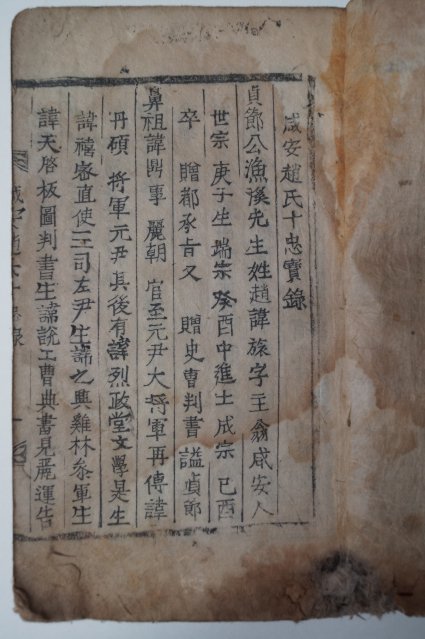 咸安趙氏十忠實錄
貞節公漁溪先生姓趙諱旅字主翁咸安人
世宗庚子生 端宗癸酉中進士 成宗己酉
卒 贈都承旨又 贈吏曹判書謚貞節
鼻祖諱鼎事 麗朝 官至元尹大將軍再傳諱
丹碩 將軍元尹其後有諱烈政堂文學是生
諱禧密直使三司左尹生諱之興雞林叅軍生
諱天啓板圖判書生諱悅工曹典書見麗運告